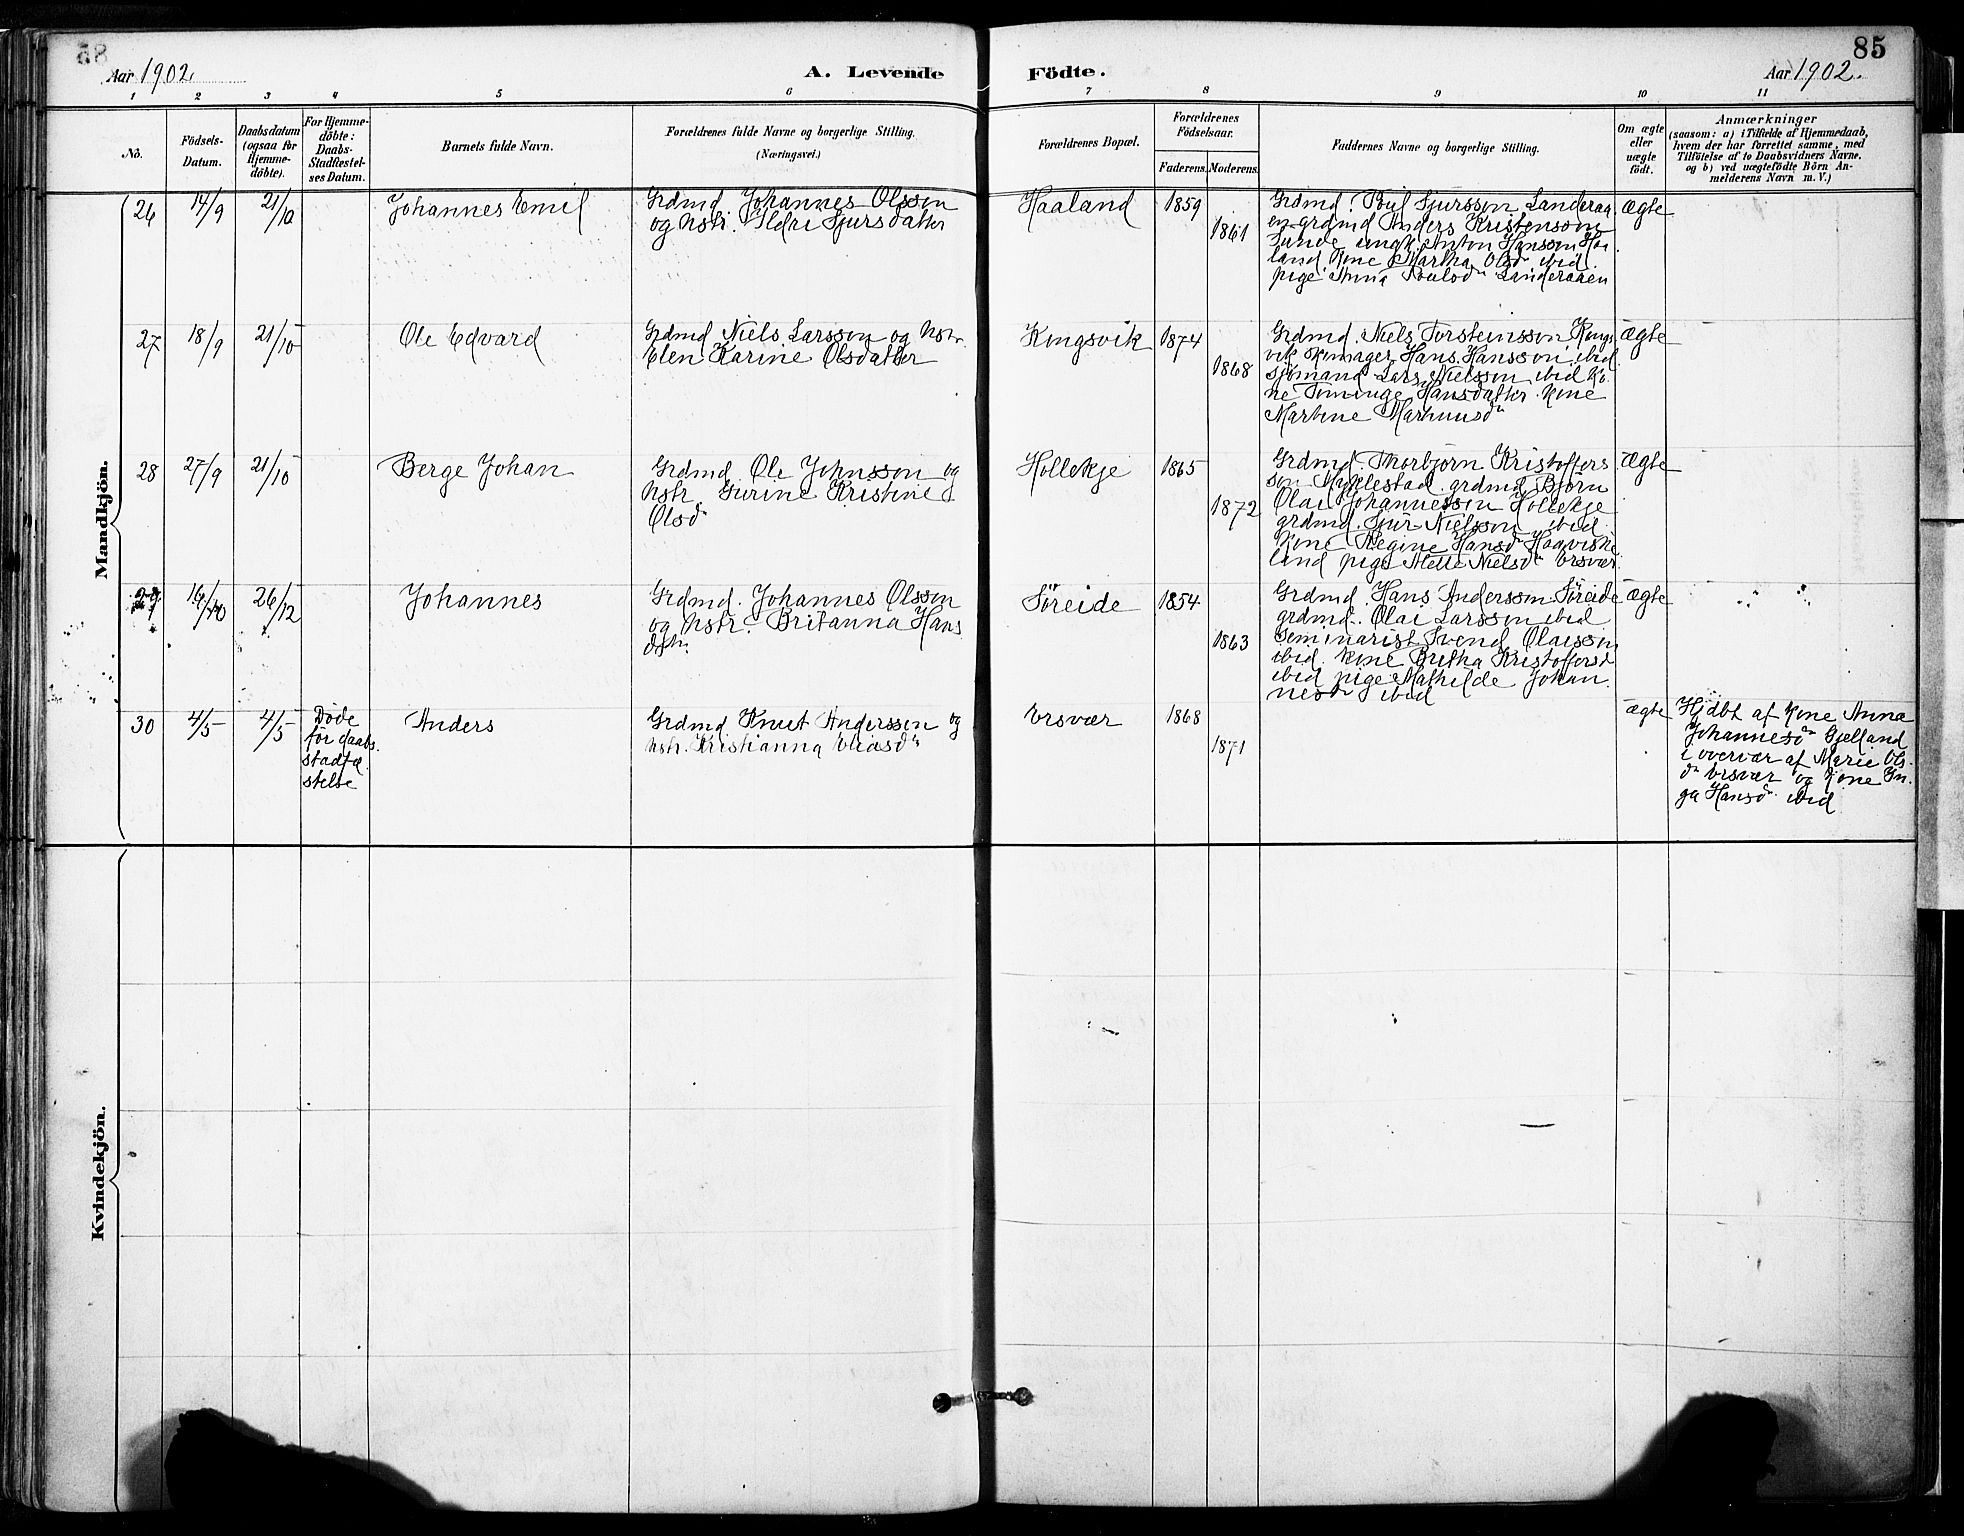 Aar 1902.
A. Levende
Födte.
85
Aar 1902.
1 2 3 4 5 6 7 8 9 10 11
No.
Födsels-
Datum.
Daabsdatum
(ogsaa for
Hjemme-
döbte).
For Hjemme-
döbte:
Daabs-
Stadfæstel-
ses Datum.
Barnets fulde Navn.
Forældrenes fulde Navne og borgerlige Stilling.
(Næringsvei.)
Forældrenes Bopæl.
Forældrenes
Födselsaar.
Faderens.
Moderens.
Faddernes Navne og borgerlige Stilling.
Om ægte
eller
uægte
födt.
Anmærkninger
(saasom: a) i Tilfælde af Hjemmedaab,
hvem der har forrettet samme, med
Tilföielse af to Daabsvidners Navne.
og b) ved uægtefödte Börn An-
melderens Navn m. V.)
Mandkjön.
26 14/9 21/10
Johannes Emil
Grdmd. Johannes Olsson
og hstr. Ildri Sjursdatter
Haaland
1859
1861
Grdmd. Poul Sjursson Landeraa
en grdmd Anders Kristensson
Sunde ungk. Anton Hansson Haa
land kone Martha Olsdr ibid.
pige Anna Poulsdr Landeraaen
ægte
27 18/9 21/10
Ole Edvard
Grdmd Niels Larsson og hstr.
Elen Karine Olsdatter
Kongsvik
1874
1868
Grdmd. Niels Torsteinsson Kongs
vik skomager Hans Hansson ibid
sjömand Lars Nielsson ibid ko
ne Hansdatter kone
Martine
ægte
28 27/9 21/10
Berge Johan
Grdmd. Ole Johnsson og
hstr. Gurine Kristine
Olsdr
Hollekje
1865
1872
Grdmd. Thorbjörn Kristoffers
son Myklestad. grdmd. Björn
Olai Johannesson Hollekje
grdmd. Sjur Nielsson ibid.
kone Regine Hansdr
land pige Mette Nielsdr Ersvær
ægte
29 16/10 26/12
Johannes
Grdmd. Johannes Olsson
og hstr. Britanna Hans
dtr.
Söreide
1854
1863
Grdmd. Hans Andersson Söreide
grdmd. Olai Larsson ibid
Seminarist Svend Olaisson
ibid. kone Britha Kristoffersd
ibid pige Mathilde Johan
nesdr ibid
ægte
30 4/5 4/5
Döde
för daabs
stadfæ
stelse
Anders
Grdmd Knut Andersson og
hstr. Kristianna Eliasdr
Ersvær
1868
1871
ægte
Hjdbt af kone Anna
Johannesdr Gjelland
i overvær af Marie Ols
dr Ersvær og kone In
ga Hansdr ibid
Kvindekjön.